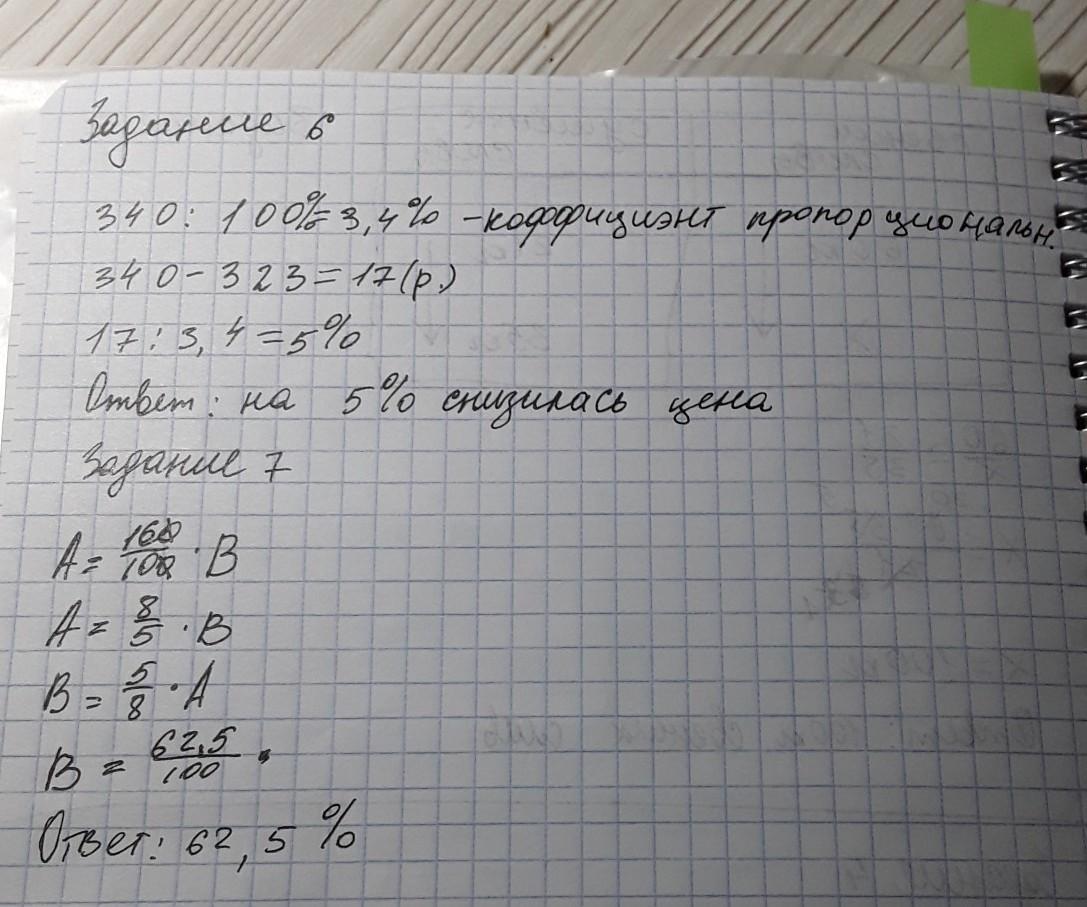 Задание 6
340 : 100% = 3,4% - коффициэнт пропорциональн.
340 - 323 = 17 (р.)
17 : 3,4 = 5%
Ответ: на 5% снизилась цена
Задание 7
A = 160/100 · B
A = 8/5 · B
B = 5/8 · A
B = 62,5/100 ·
Ответ: 62,5 %